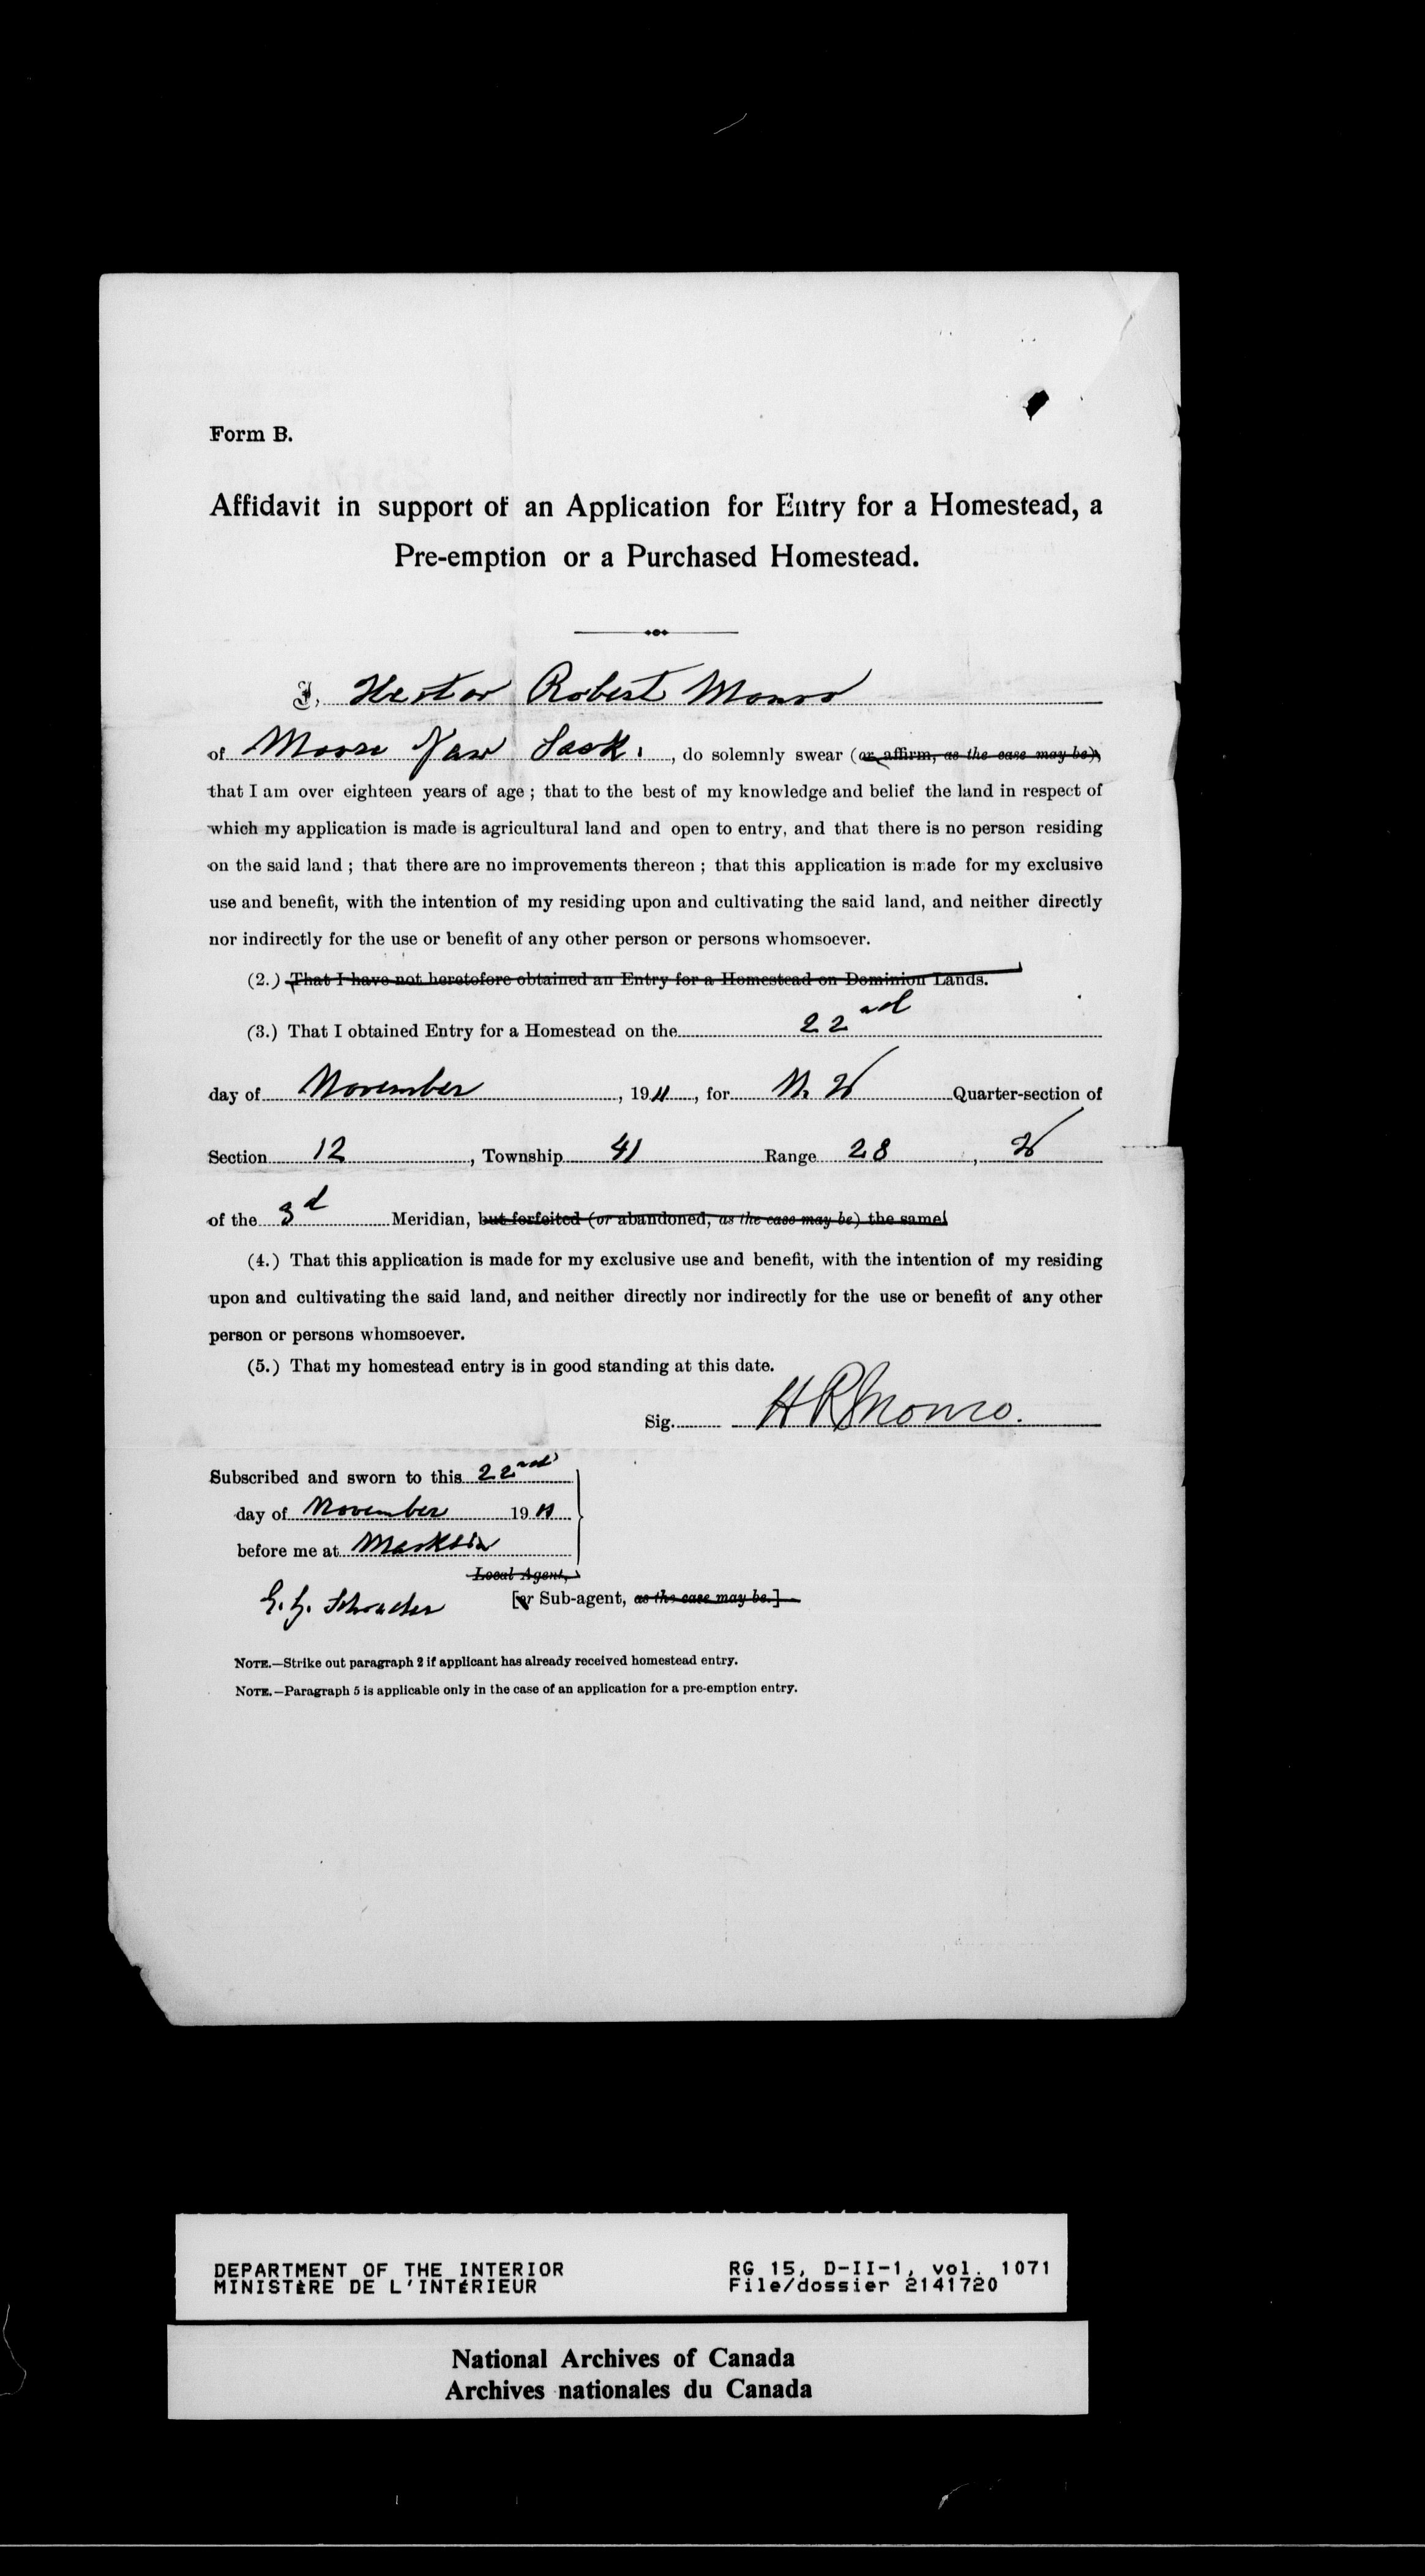 Form B.
Affidavit in support of an Application for Entry for a Homestead, a
Pre-emption or a Purchased Homestead.
I, Hector Robert Monro
of Moose Jaw Sask. , do solemnly swear (or affirm, as the case may be),
that I am over eighteen years of age ; that to the best of my knowledge and belief the land in respect of
which my application is made is agricultural land and open to entry, and that there is no person residing
on the said land ; that there are no improvements thereon ; that this application is made for my exclusive
use and benefit, with the intention of my residing upon and cultivating the said land, and neither directly
nor indirectly for the use or benefit of any other person or persons whomsoever.
(2.) That I have not heretofore obtained an Entry for a Homestead on Dominion Lands.
(3.) That I obtained Entry for a Homestead on the 22nd
day of November , 1911 , for N. W Quarter-section of
Section 12 , Township 41 Range 28 , W
of the 3d Meridian, but forfeited (or abandoned, as the case may be) the same.
(4.) That this application is made for my exclusive use and benefit, with the intention of my residing
upon and cultivating the said land, and neither directly nor indirectly for the use or benefit of any other
person or persons whomsoever.
(5.) That my homestead entry is in good standing at this date.
Sig. H R Monro.
Subscribed and sworn to this 22nd
day of November 1911
before me at Macklin
Local Agent,
[or Sub-agent, as the case may be.]
NOTE.—Strike out paragraph 2 if applicant has already received homestead entry.
NOTE.—Paragraph 5 is applicable only in the case of an application for a pre-emption entry.
DEPARTMENT OF THE INTERIOR RG 15, D-II-1, vol. 1071
MINISTÈRE DE L'INTÉRIEUR File/dossier 2141720
National Archives of Canada
Archives nationales du Canada